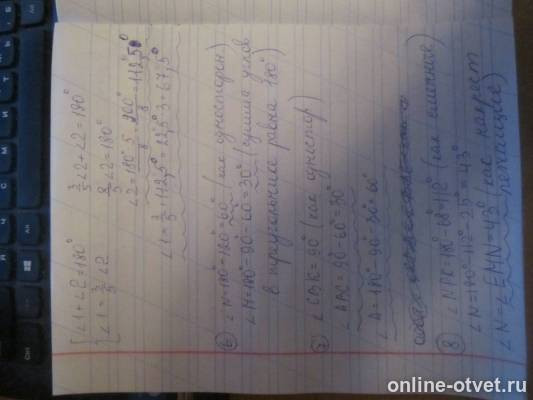 ∠1+∠2=180°
∠1=3/5 ∠2
3/5 ∠2+∠2=180°
8/5 ∠2=180°
∠2=180°·5/8=900°/8=112,5°
∠1=3/5·112,5°=22,5°·3=67,5°
6) ∠N=180°-120°=60° (как односторон.)
∠M=180°-90°-60°=30° (сумма углов
в треугольнике равна 180°)
7) ∠CBK=90° (как одностор)
∠ABC=90°-60°=30°
∠A=180°-90°-30°=60°
8) ∠NPE=180°-68°=112° (как смежные)
∠N=180°-112°-25°=43°
∠N=∠EMN=43° (как накрест
лежащие)
online-otvet.ru